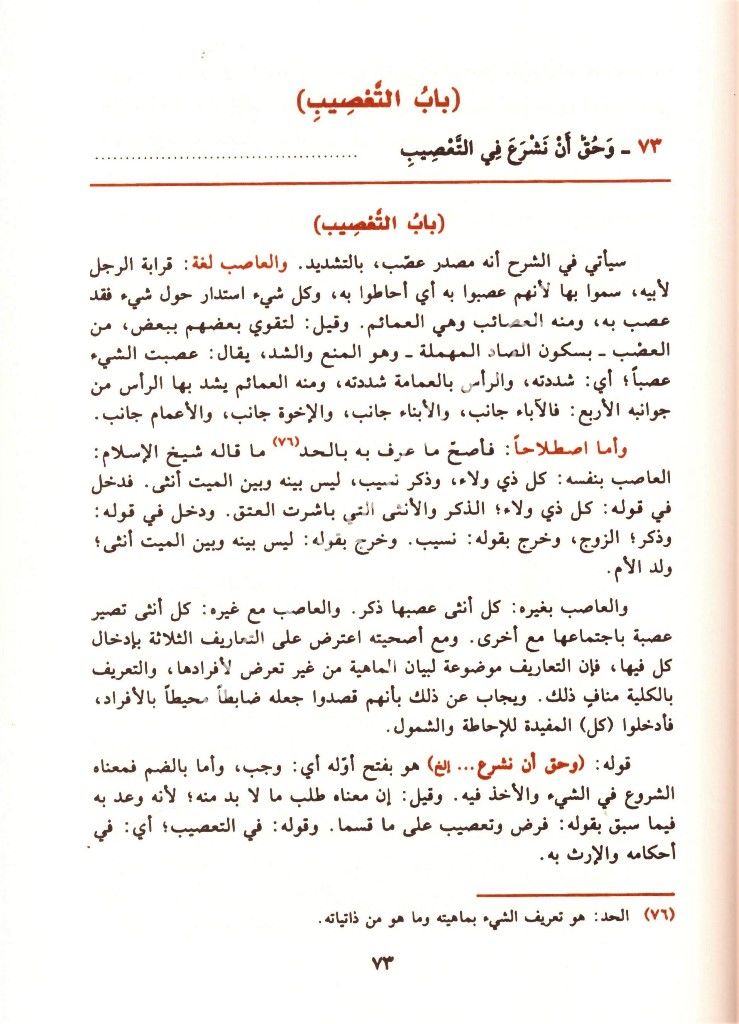 (بابُ التَّعْصِيبِ)
٧٣ ـ وَحُقَّ أَنْ نَشْرَعَ فِي التَّعْصِيبِ ........................................
(بابُ التَّعْصِيب)
سيأتي في الشرح أنه مصدر عصّب، بالتشديد. والعاصب لغة: قرابة الرجل
لأبيه، سموا بها لأنهم عصبوا به أي أحاطوا به، وكل شيء استدار حول شيء فقد
عصب به، ومنه العصائب وهي العمائم. وقيل: لتقوي بعضهم ببعض، من
العصْب ـ بسكون الصاد المهملة ـ وهو المنع والشد، يقال: عصبت الشيء
عصباً؛ أي: شددته، والرأس بالعمامة شددته، ومنه العمائم يشد بها الرأس من
جوانبه الأربع: فالآباء جانب، والأبناء جانب، والإخوة جانب، والأعمام جانب.
وأما اصطلاحاً: فأصحّ ما عرف به بالحد(٧٦) ما قاله شيخ الإسلام:
العاصب بنفسه: كل ذي ولاء، وذكر نسيب، ليس بينه وبين الميت أنثى. فدخل
في قوله: كل ذي ولاء؛ الذكر والأنثى التي باشرت العتق. ودخل في قوله:
وذكر؛ الزوج، وخرج بقوله: نسيب. وخرج بقوله: ليس بينه وبين الميت أنثى؛
ولد الأم.
والعاصب بغيره: كل أنثى عصبها ذكر. والعاصب مع غيره: كل أنثى تصير
عصبة باجتماعها مع أخرى. ومع أصحيته اعترض على التعاريف الثلاثة بإدخال
كل فيها، فإن التعاريف موضوعة لبيان الماهية من غير تعرض لأفرادها، والتعريف
بالكلية منافٍ ذلك. ويجاب عن ذلك بأنهم قصدوا جعله ضابطاً محيطاً بالأفراد،
فأدخلوا (كل) المفيدة للإحاطة والشمول.
قوله: (وحق أن نشرع... إلخ) هو بفتح أوّله أي: وجب، وأما بالضم فمعناه
الشروع في الشيء والأخذ فيه. وقيل: إن معناه طلب ما لا بد منه؛ لأنه وعد به
فيما سبق بقوله: فرض وتعصيب على ما قسما. وقوله: في التعصيب؛ أي: في
أحكامه والإرث به.
(٧٦) الحد: هو تعريف الشيء بماهيته وما هو من ذاتياته.
٧٣